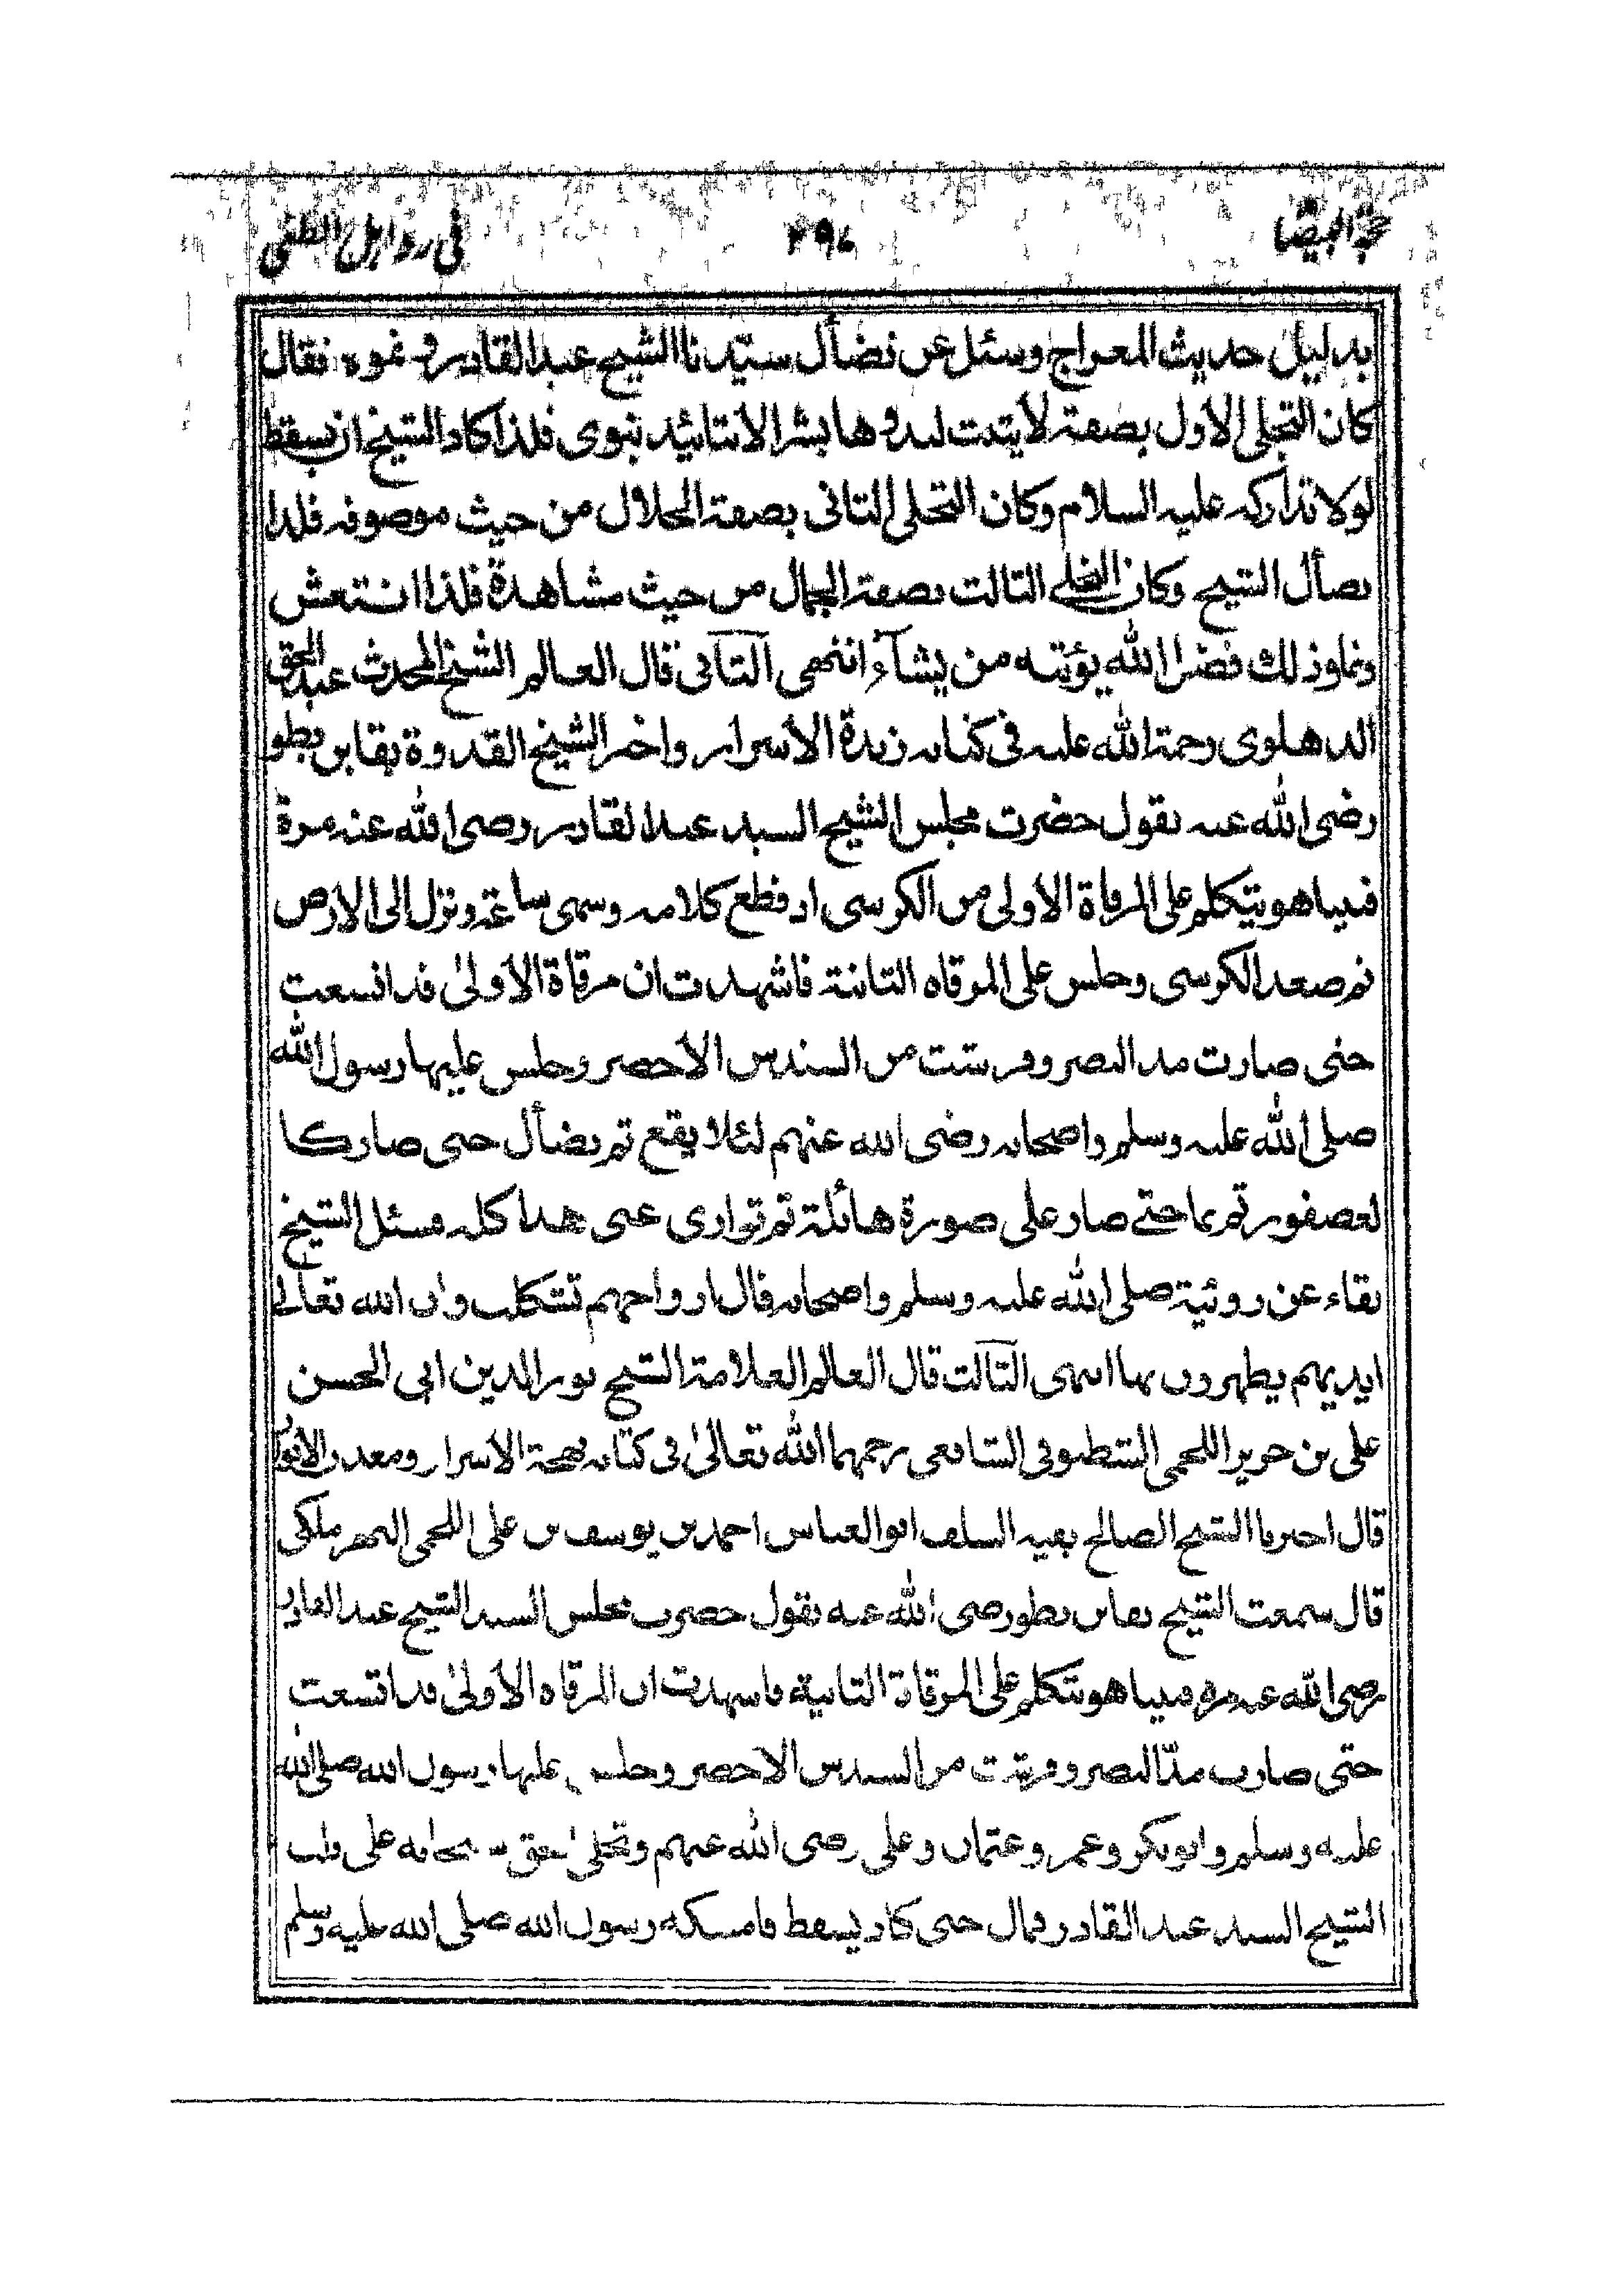 حجة البيضا ٢٩٨ في رد اهل الطغى
بدليل حديث المعراج وسئل عن تضأل سيدنا الشيخ عبد القادر و نموه فقال
كان التجلي الاول بصفة لا يثبت لبدوها بشر الا بتائيد نبوى فلذا كاد الشيخ ان يسقط
لولا تداركه عليه السلام وكان التجلى الثانى بصفة الجلال من حيث موصوفه فلذا
تضأل الشيخ وكان التجلي الثالث بصفة الجمال من حيث مشاهدة فلذا انتعش
ونما وذلك فضل الله يؤتيه من يشآء انتهى الثاني قال العالم الشيخ المحدث عبد الحق
الدهلوى رحمة الله عليه في كتابه زبدة الأسرار واخبر الشيخ القدوة بقا بن بطو
رضى الله عنه يقول حضرت مجلس الشيخ السيد عبد القادر رضى الله عنه مرة
فبينا هو يتكلم على المرقاة الاولى من الكرسى اذ قطع كلامه وسهى ساعة ونزل الى الارض
ثم صعد الكرسى وجلس على المرقاه الثانية فاشهدت ان مرقاة الأولى قد اتسعت
حتى صارت مد البصر وفرشت من السندس الأخضر وجلس عليها رسول الله
صلى الله عليه وسلم واصحابه رضى الله عنهم لئلا يقع ثم تضأل حتى صار كا
لعصفور ثم نما حتى صار على صورة هائلة ثم توارى عنى هذا كله فسئل الشيخ
بقاء عن روئية صلى الله عليه وسلم واصحابه قال ارواحهم تشكلت وان الله تعالى
ايديهم يظهرون بها انتهى الثالث قال العالم العلامة الشيخ نور الدين ابى الحسن
على بن حرير اللخمى الشطنوفى الشافعى رحمهما الله تعالىٰ فى كتابه بهجة الأسرار ومعدن الأنوار
قال اخبرنا الشيخ الصالح بقيه السلف ابو العباس احمد بن يوسف بن على اللخمى النهر ملكى
قال سمعت الشيخ بقا بن بطو رضى الله عنه يقول حضرت مجلس السيد الشيخ عبد القادر
رضى الله عنه مرة فبينا هو يتكلم على المرقاة الثانية فاشهدت ان المرقاه الأولىٰ قد اتسعت
حتى صارت مدّ البصر وفرشت من السندس الاخضر وجلس عليها رسول الله صلى الله
عليه وسلم وابو بكر وعمر وعثمان وعلى رضى الله عنهم وتجلى الحق سبحانه على قلب
الشيخ السيد عبد القادر فمال حتى كاد يسقط فامسكه رسول الله صلى الله عليه وسلم